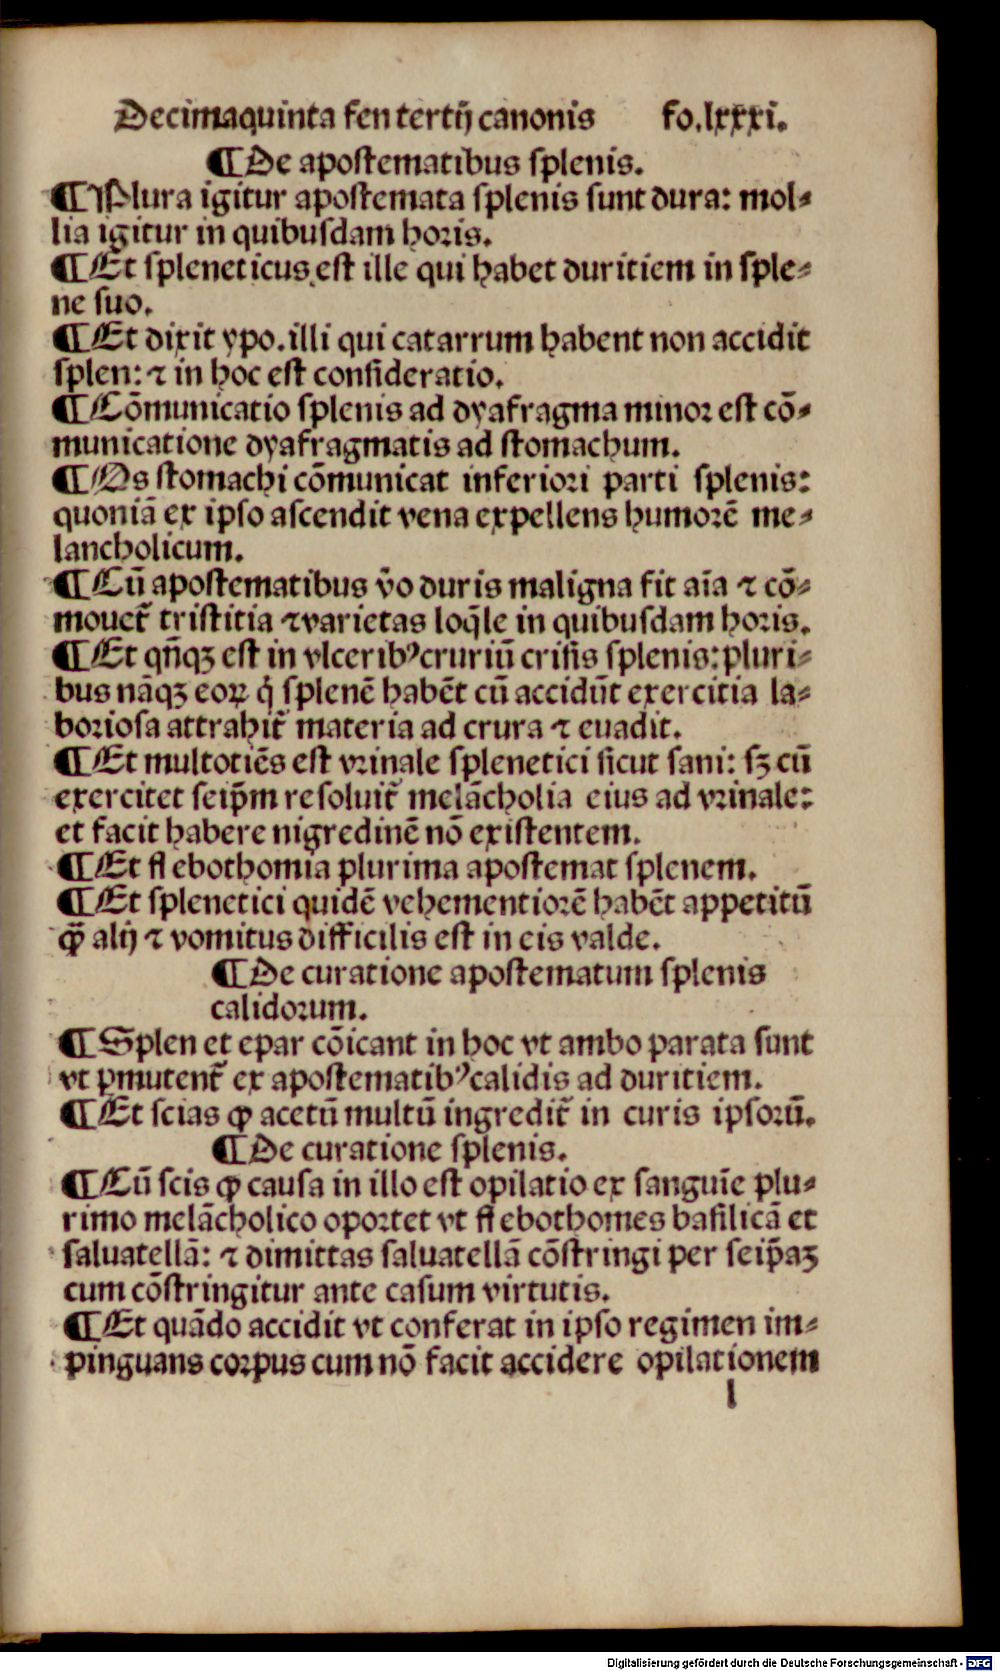 Decimaquinta fen tertij canonis fo.lxxxi.
¶De apostematibus splenis.
¶Plura igitur apostemata splenis sunt dura: mol⸗
lia igitur in quibusdam horis.
¶Et spleneticus est ille qui habet duritiem in sple⸗
ne suo.
¶Et dixit ypo. illi qui catarrum habent non accidit
splen: ⁊ in hoc est consideratio.
¶Cōmunicatio splenis ad dyafragma minor est cō⸗
municatione dyafragmatis ad stomachum.
¶Os stomachi cōmunicat inferiori parti splenis:
quoniā ex ipso ascendit vena expellens humorē me⸗
lancholicum.
¶Cū apostematibus v̄o duris maligna fit aīa ⁊ cō⸗
mouet̄ tristitia ⁊ varietas loq̄le in quibusdam horis.
¶Et qn̄qꝫ est in vlceribꝰ cruriū crisis splenis: pluri⸗
bus nāqꝫ eoꝝ q̇ splenē habēt cū accidūt exercitia la⸗
boriosa attrahit̄ materia ad crura ⁊ euadit.
¶Et multotiēs est vrinale splenetici sicut sani: sꝫ cū
exercitet seip̄m resoluit̄ melācholia eius ad vrinale:
et facit habere nigredinē nō existentem.
¶Et flebothomia plurima apostemat splenem.
¶Et splenetici quidē vehementiorē habēt appetitū
ꝙ̄ alij ⁊ vomitus difficilis est in eis valde.
¶De curatione apostematum splenis
calidorum.
¶Splen et epar cōicant in hoc vt ambo parata sunt
vt ꝑmutent̄ ex apostematibꝰ calidis ad duritiem.
¶Et scias ꝙ acetū multū ingredit̄ in curis ipsorū.
¶De curatione splenis.
¶Cū scis ꝙ causa in illo est opilatio ex sanguīe plu⸗
rimo melācholico oportet vt flebothomes basilicā et
saluatellā: ⁊ dimittas saluatellā cōstringi per seip̄aꝫ
cum cōstringitur ante casum virtutis.
¶Et quādo accidit vt conferat in ipso regimen im⸗
pinguans corpus cum nō facit accidere opilationem
l
Digitalisierung gefördert durch die Deutsche Forschungsgemeinschaft - DFG